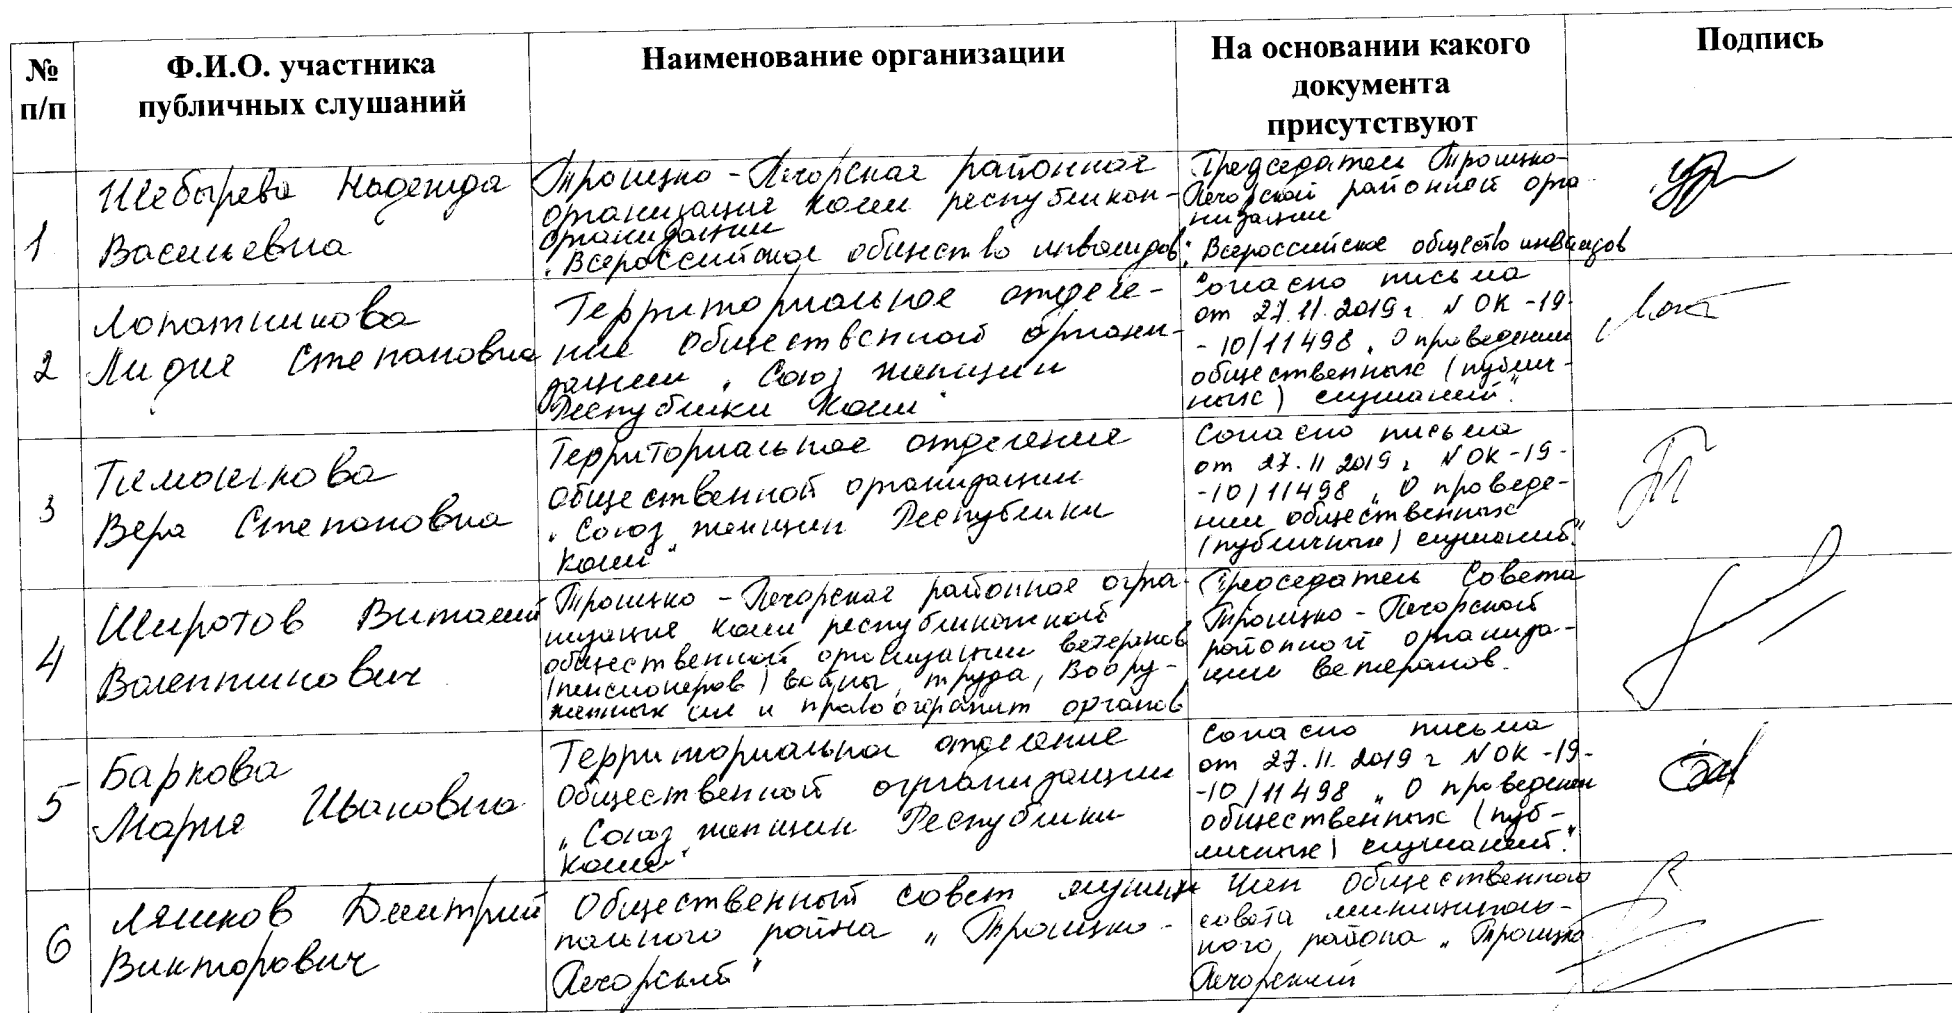 № п/п
Ф.И.О. участника
публичных слушаний
Наименование организации
На основании какого
документа
присутствуют
Подпись
1
Шебырева Надежда
Васильевна
Троицко-Печорская районная
организация Коми республикан-
организации
"Всероссийское общество инвалидов"
Председатель Троицко-
Печорской районной орга-
низации
"Всероссийское общество инвалидов
2
Лопатникова
Лидия Степановна
Территориальное отделе-
ние общественной органи-
зации "Союз женщин
Республики Коми"
Согласно письма
от 27.11.2019 г. № ОК-19-
-10/11498 "О проведении
общественных (публич-
ных) слушаний".
3
Вера Степановна
Территориальное отделение
общественной организации
"Союз женщин Республики
Коми"
Согласно письма
от 27.11.2019 г. № ОК-19-
-10/11498 "О проведе-
нии общественных
(публичных) слушаний".
4
Широтов Виталий
Валентинович
Троицко-Печорская районная огра-
низация Коми республиканской
общественной организации ветеранов
(пенсионеров) войны, труда, Воору-
женных сил и правоохранит органов
Председатель Совета
Троицко-Печорской
районной организа-
ции ветеранов.
5
Баркова
Мария Ивановна
Территориальное отделение
общественной огрганизации
"Союз женщин Республики
Коми"
Согласно письма
от 27.11.2019 г № ОК-19-
-10/11498 "О проведении
общественных (пуб-
личных) слушаний".
6
Ляшков Дмитрий
Викторович
Общественный совет муници
пального района "Троицко-
Печорский"
Член Общественного
совета муниципаль-
ного района "Троицко
Печорский